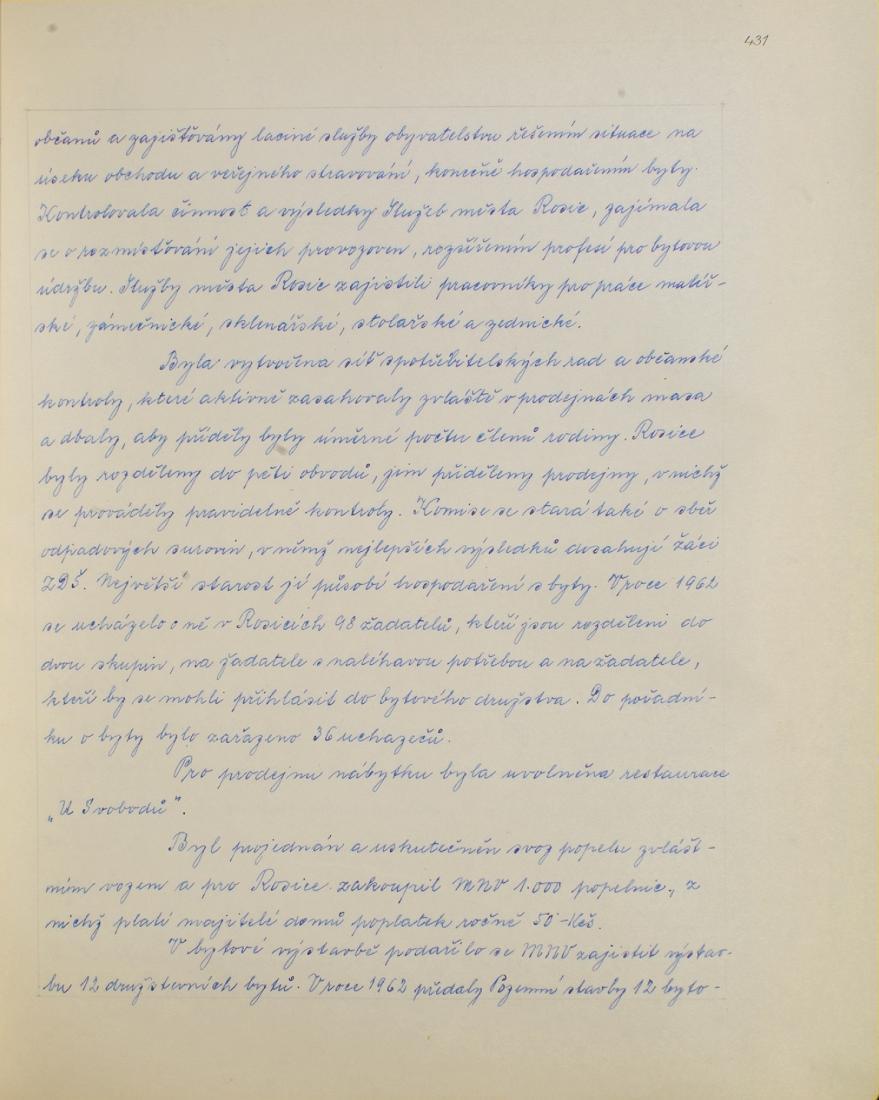 431
občanů a zajišťovány laciné služby obyvatelstvu řešením situace na
úseku obchodu a veřejného stravování, konečně hospodařením byty.
Kontrolovala činnost a výsledky Služeb města Rosic, zajímala
se o rozmisťování jejich provozoven, rozšířením profesí pro bytovou
údržbu. Služby města Rosic zajistili pracovníky pro práce malíř-
ské, zámečnické, sklenářské, stolařské a zednické.
Byla vytvořena síť spotřebitelských rad a občanské
kontroly, které aktivně zasahovaly zvláště v prodejnách masa
a dbaly, aby příděly byly úměrné počtu členů rodiny. Rosice
byly rozděleny do pěti obvodů, jim přiděleny prodejny, v nichž
se prováděly pravidelné kontroly. Komise se stará také o sběr
odpadových surovin, v němž nejlepších výsledků dosahují žáci
ZDŠ. Největší starost jí působí hospodaření s byty. V roce 1962
se ucházelo o ně v Rosicích 98 žadatelů, kteří jsou rozděleni do
dvou skupin, na žadatele s naléhavou potřebou a na žadatele,
kteří by se mohli přihlásit do bytového družstva. Do pořadní-
ku o byty bylo zařazeno 36 uchazečů.
Pro prodejnu nábytku byla uvolněna restaurace
„U Svobodů".
Byl projednán a uskutečněn svoz popelu zvlášt-
ním vozem a pro Rosice zakoupil MNV 1.000 popelnic, z
nichž platí majitelé domů poplatek ročně 50-Kčs.
V bytové výstavbě podařilo se MNV zajistit výstav-
bu 12 družstevních bytů. V roce 1962 předaly Pozemní stavby 12 byto-